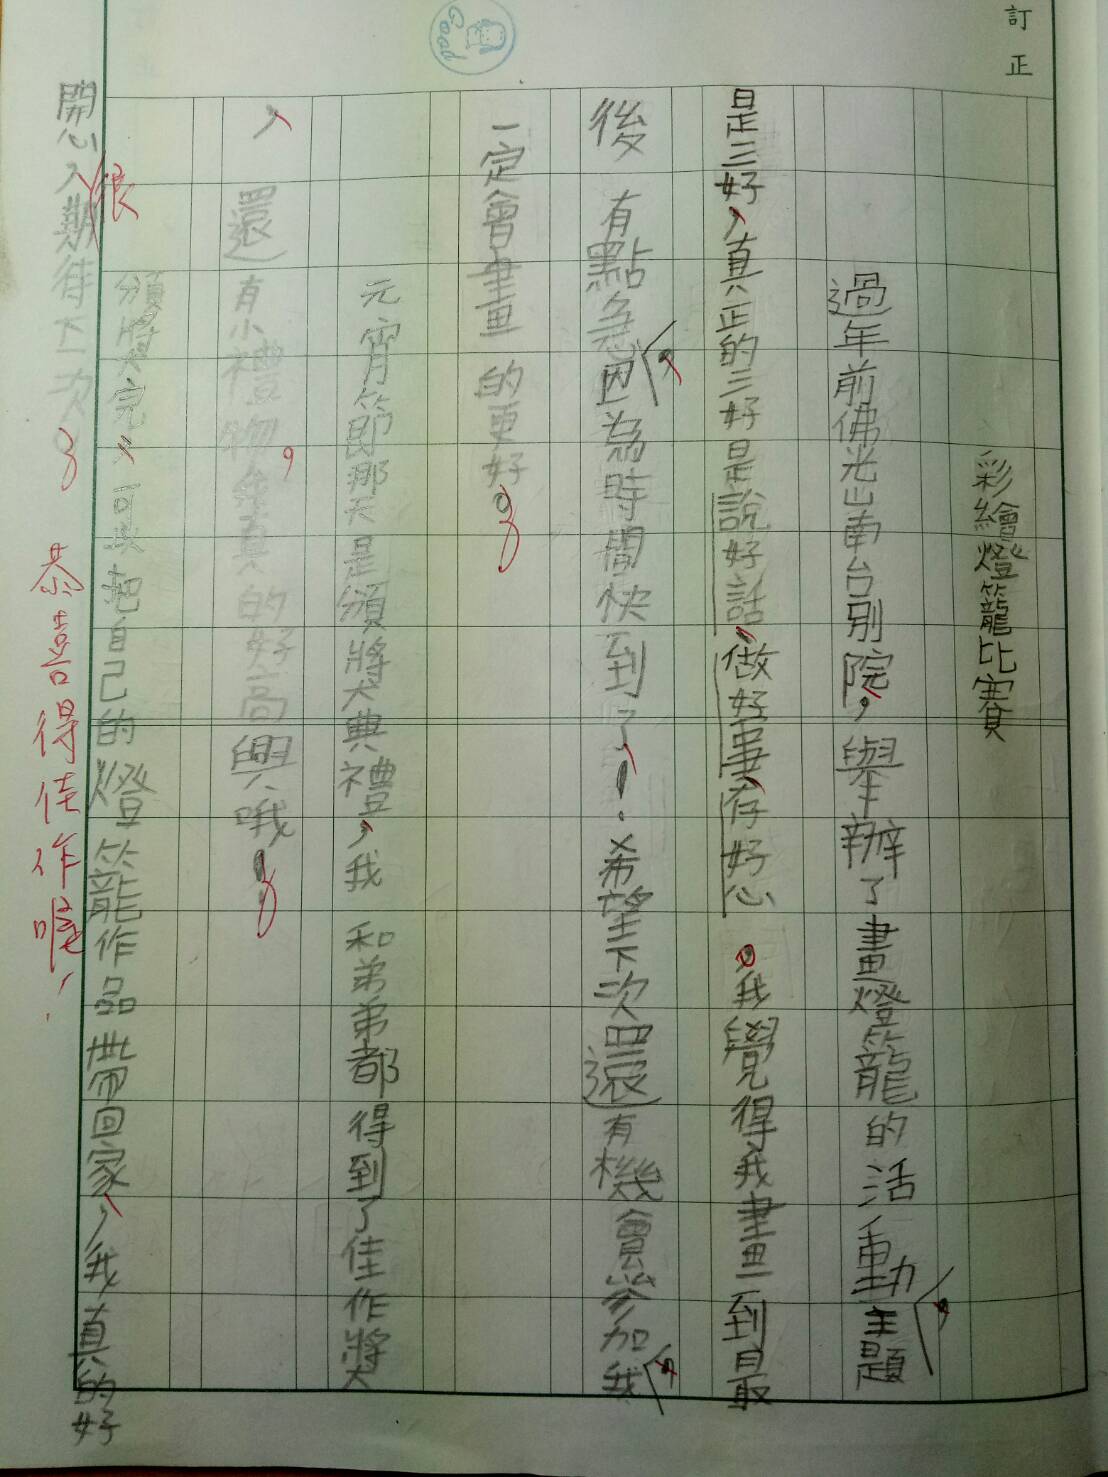 訂正
Good
彩繪燈籠比賽
過年前佛光山南台別院，舉辦了畫燈籠的活動，主題
是三好，真正的三好是說好話、做好事、存好心，我覺得我畫到最
後有點急，因為時間快到了！希望下次還有機會參加，我
一定會畫的更好。
元宵節那天是頒獎典禮，我和弟弟都得到了佳作獎
，還有小禮物，我真的好高興哦！
頒獎完，可以把自己的燈籠作品帶回家，我真的好
開心，很期待下一次。
恭喜得佳作喔！